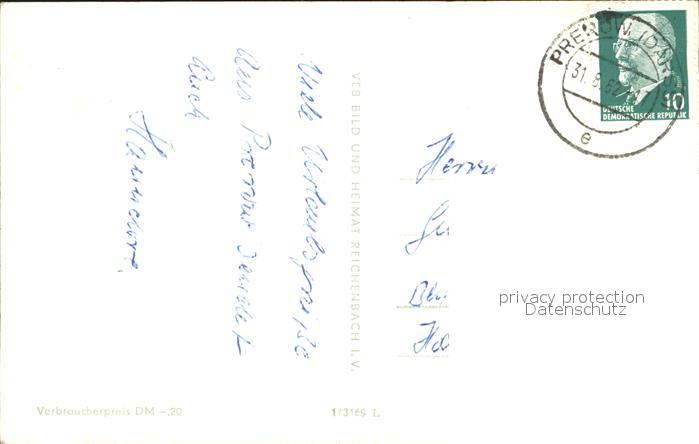 Viele Urlaubsgrüße
Aus Prerow sendet
Euch
Hannelore.
VEB BILD UND HEIMAT REICHENBACH I. V.
Herrn
PREROW (DARSS)
31.8.62
e
10
DEUTSCHE
DEMOKRATISCHE REPUBLIK
privacy protection
Datenschutz
Verbraucherpreis DM –,20
1/3169 L